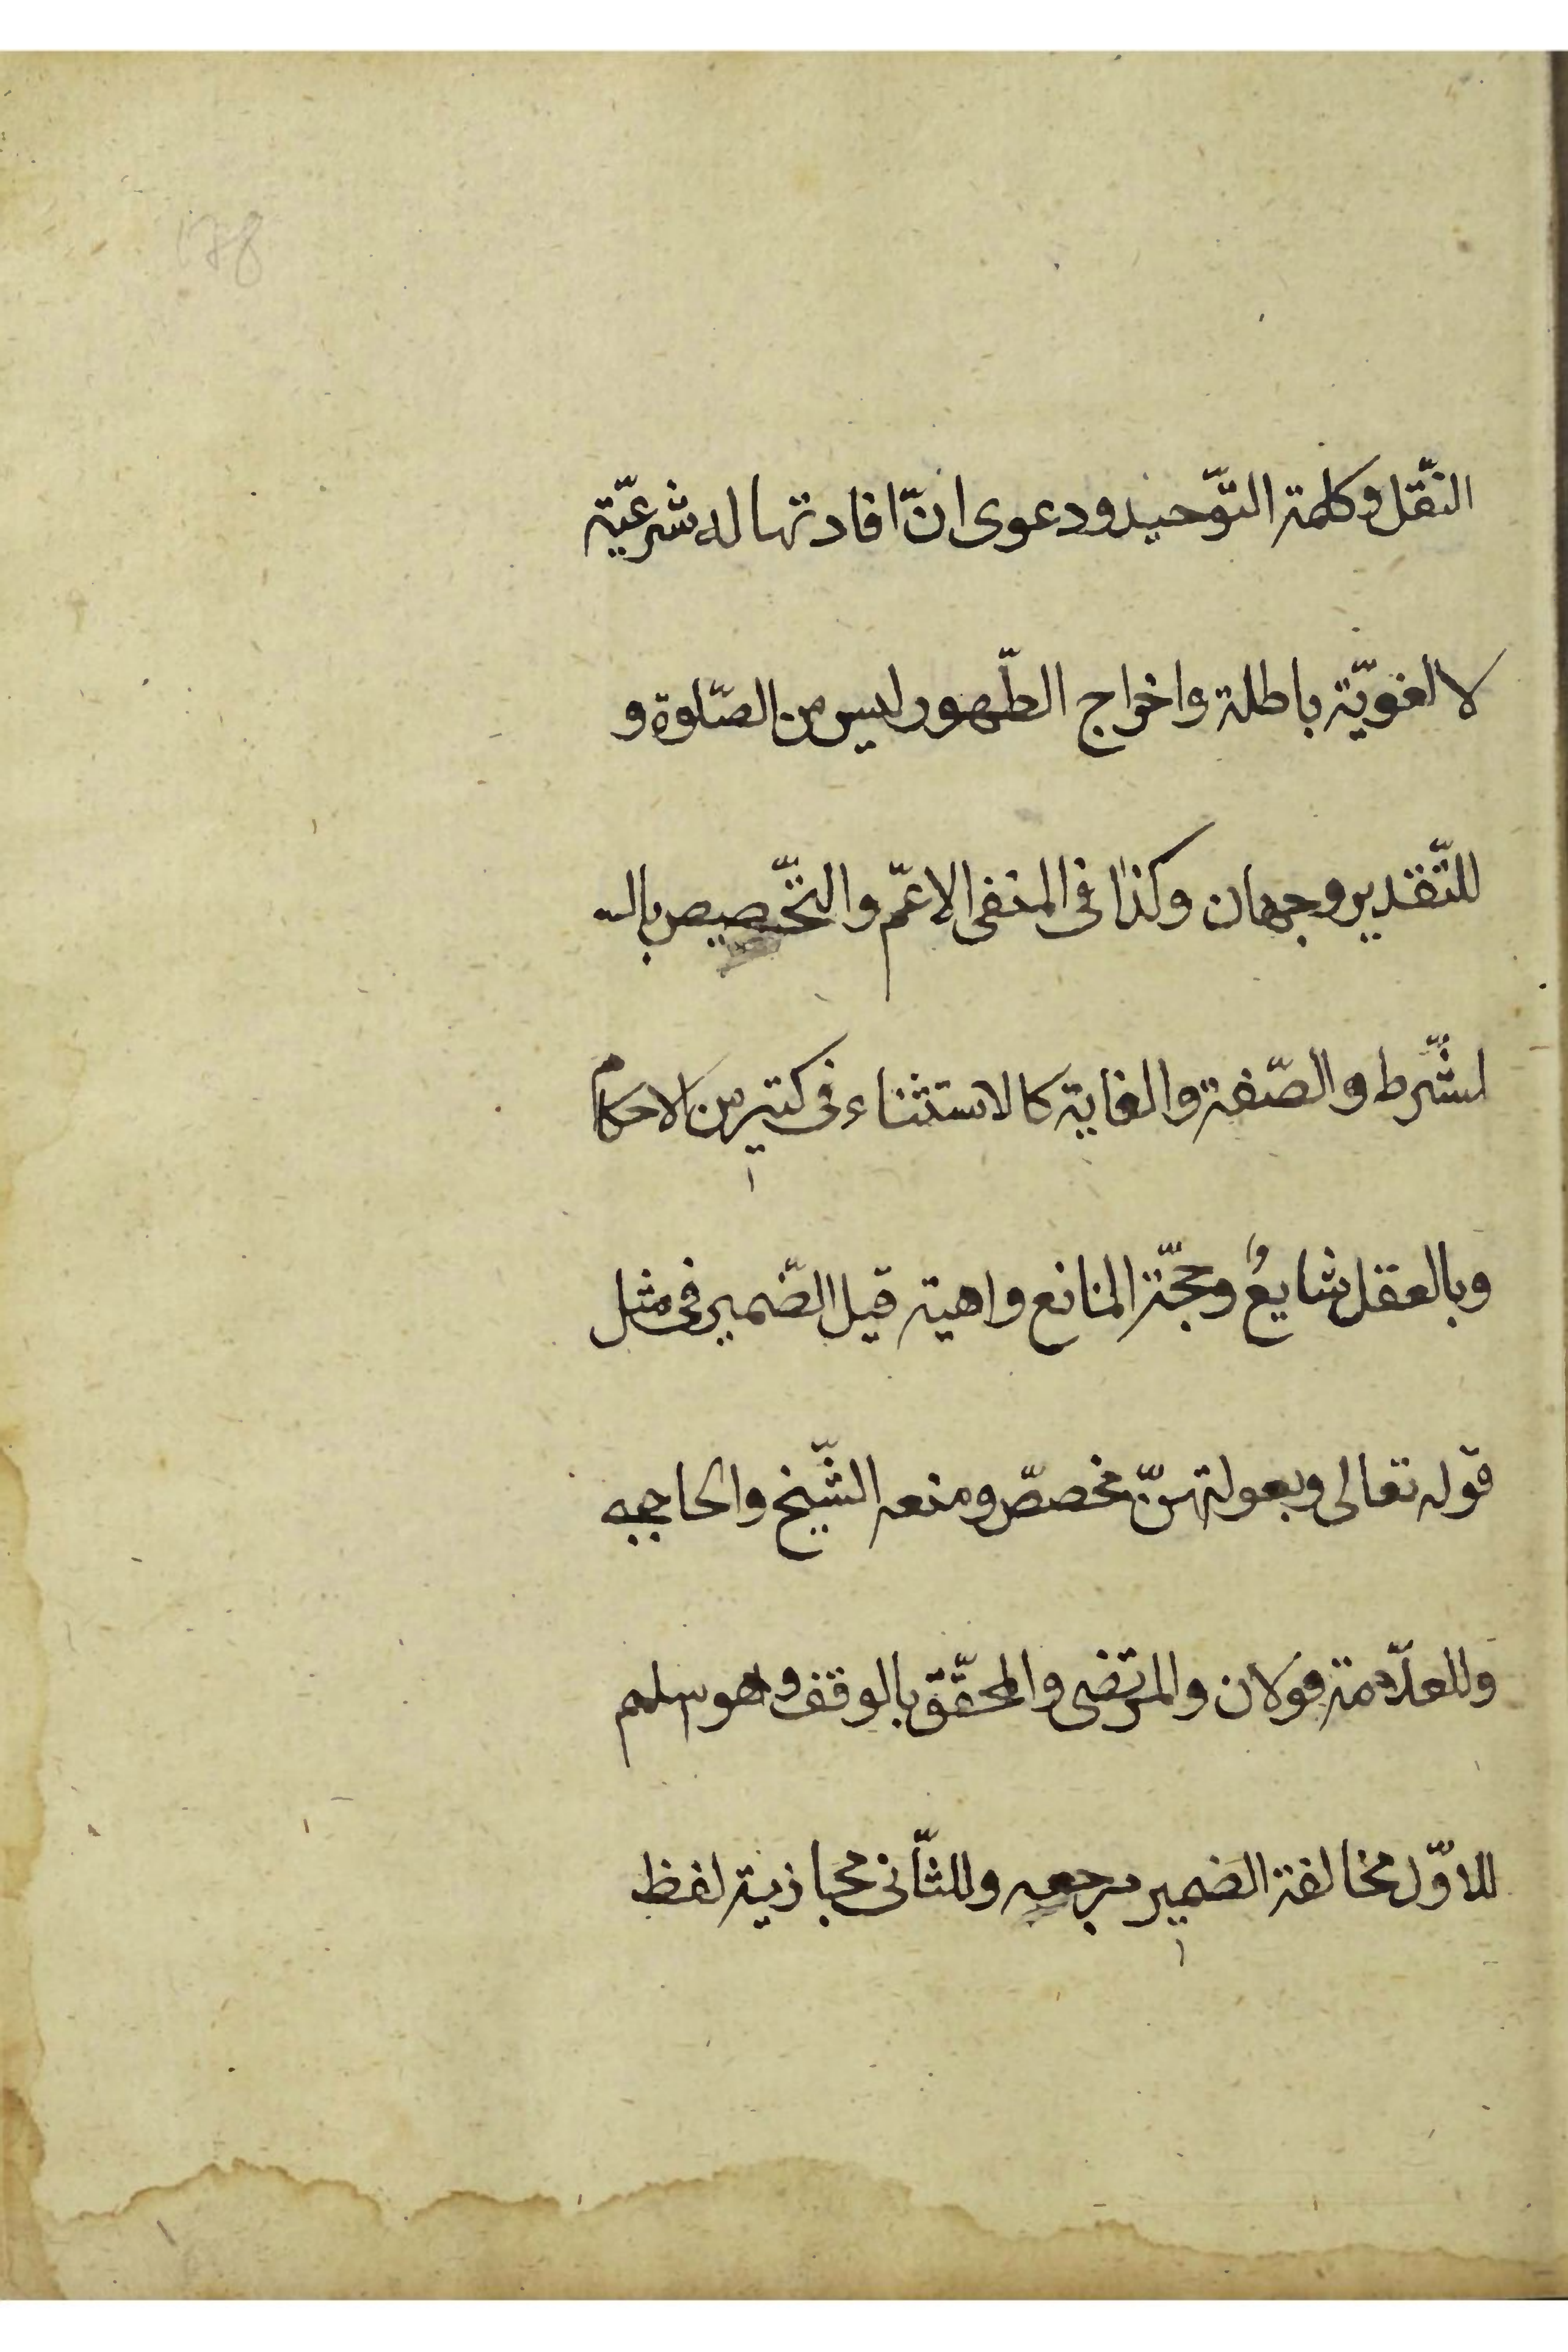 178
النّقل وكلمة التّوحيد ودعوى انّ افادتها له شرعيّة
لا لغويّة باطلة واخراج الطّهور ليس من الصّلوة و
للتّقدير وجهان وكذا فى المنفى الاعمّ والتّخصيص بال
لشّرط والصّفة والغاية كالاستثناء فى كثير من الاحكام
وبالعقل شايعٌ وحجّة المانع واهية قيل الضّمير فى مثل
قوله تعالى وبعولتهنّ مخصصّ ومنعه الشّيخ والحاجبى
وللعلّامة قولان والمرتضى والمحقّق بالوقف وهو اسلم
للاوّل مخالفة الضمير مرجعه وللثّانى مجازية لفظ